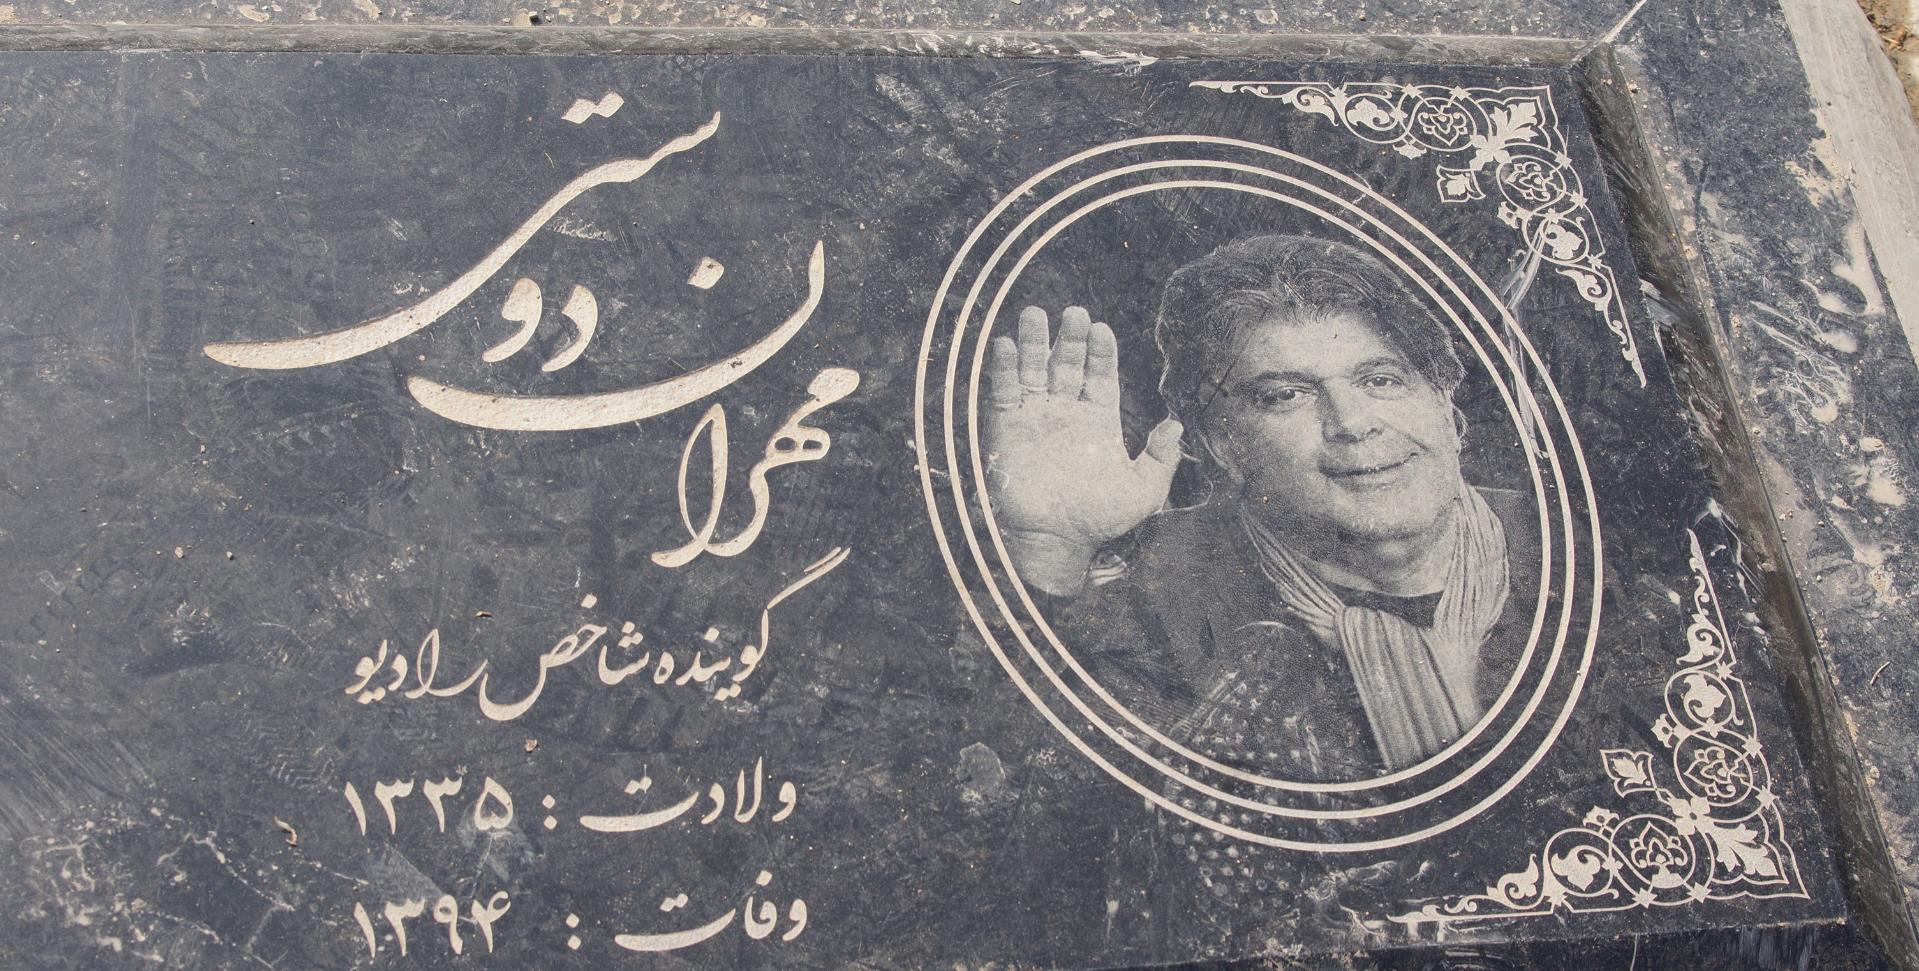 مهران دوستی
گوینده شاخص رادیو
ولادت : ۱۳۳۵
وفات : ۱۳۹۴